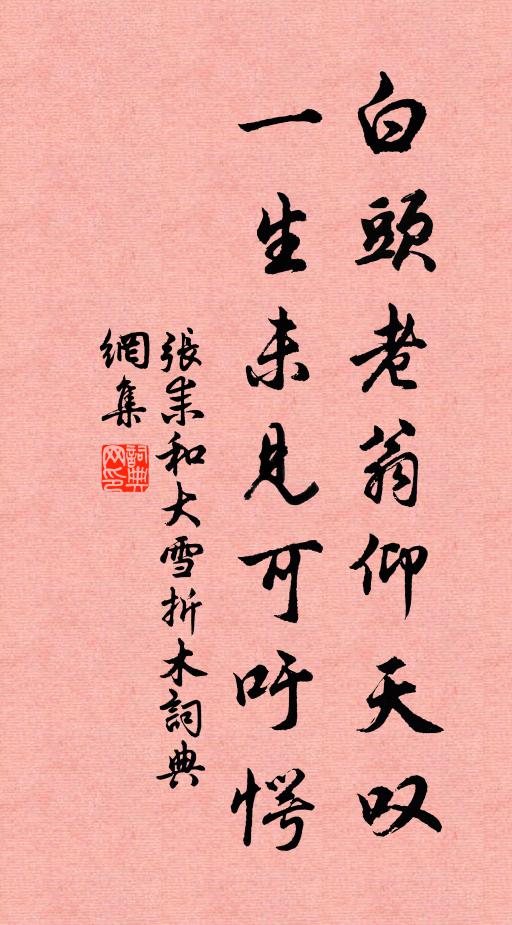 白頭老翁仰天叹
一生未見可吁愕
張耒和大雪折木詞典
網集
詞典
网印